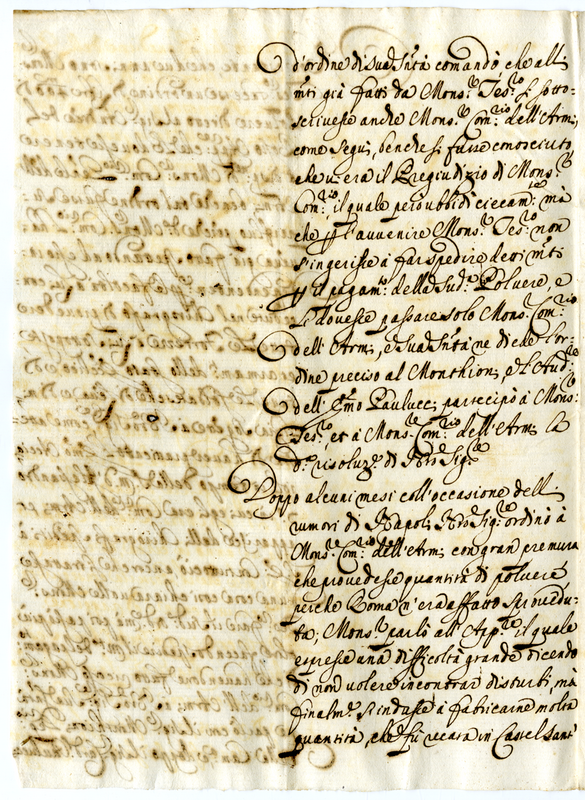 d'ordine di sua Sntà comandò che all:
mti già fatti da Mons.r Tes.ro si sotto=
scrivesse anche Mons.r Com.rio dell'Arm:
come seguì, benche si fusse conosciuto
che v'era il Pregiudizio di Mons.r
Com.rio il quale però ubbidì ciecam.te mà
che p l'avvenire Mons.r Tes.ro non
s'ingerisse à far spedire detti mti
p il pagam.to della Sud.a Polvere, e
li dovesse passare solo Mons.r Com.rio
dell'Arm: e sua Sntà ne diede l'or=
dine preciso al Monthion: e l'Aud.re
dell'Emo Paulucci partecipò à Mons.r
Tes.ro et à Mons.r Com.rio dell'Arm: la
d.a risoluz.e di Nro Sig.re
Doppo alcuni mesi coll'occasione dell:
rumori di Napoli Nro Sig.re ordinò à
Mons.r Com.rio dell'Arm: con gran premura
che provedesse quantità di polvere
perche Roma n'era affatto sprovedu=
ta; Mons.r parlò all'App.re il quale
espresse una difficoltà grande dicendo
di non volere incontrar disturbi, ma
finalm.te s'indusse à fabricarne molta
quantità, che fù recata in Castel Sant'